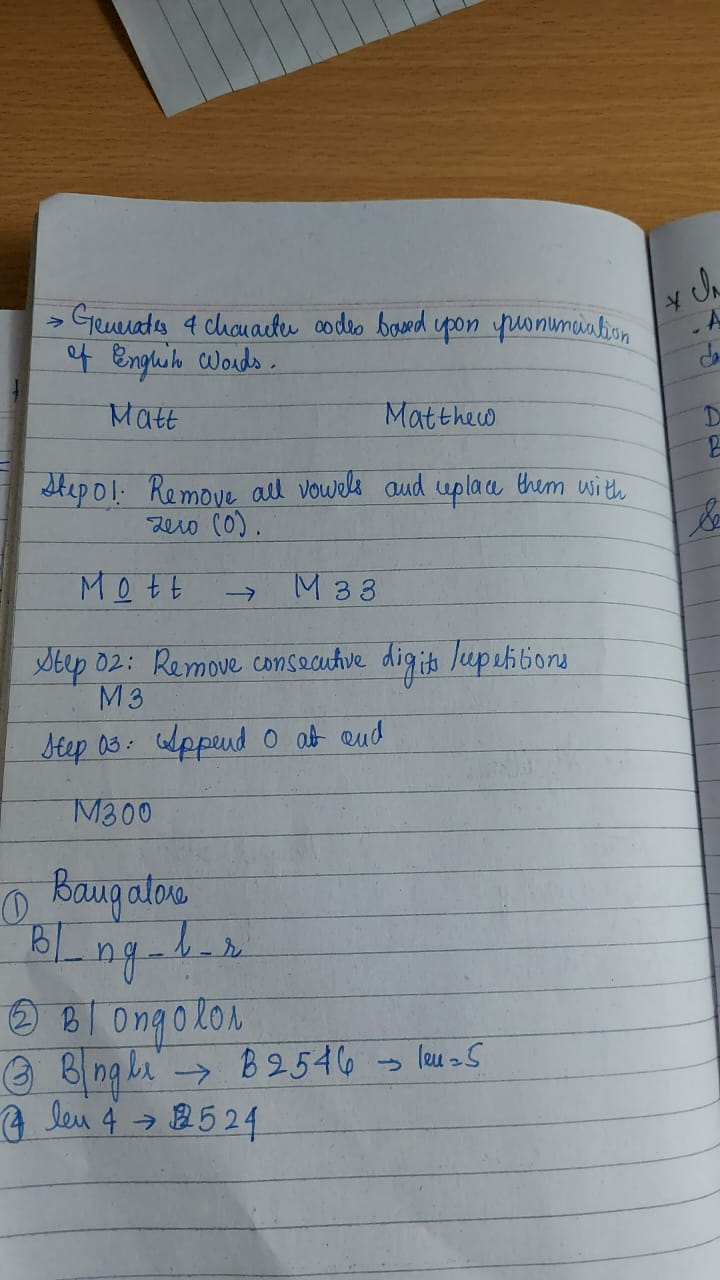 → Generates 4 character codes based upon pronunciation
of English Words.
Matt Matthew
Step 01: Remove all vowels and replace them with
zero (0).
M 0 t t → M 3 3
Step 02: Remove consecutive digits /repetitions
M3
Step 03: Append 0 at end
M300
① Bangalore
B|_ ng_l_r
② B| 0ng0l0r
③ B|nglr → B 2546 → len=5
④ len 4 → B524
* In
- A
D
B